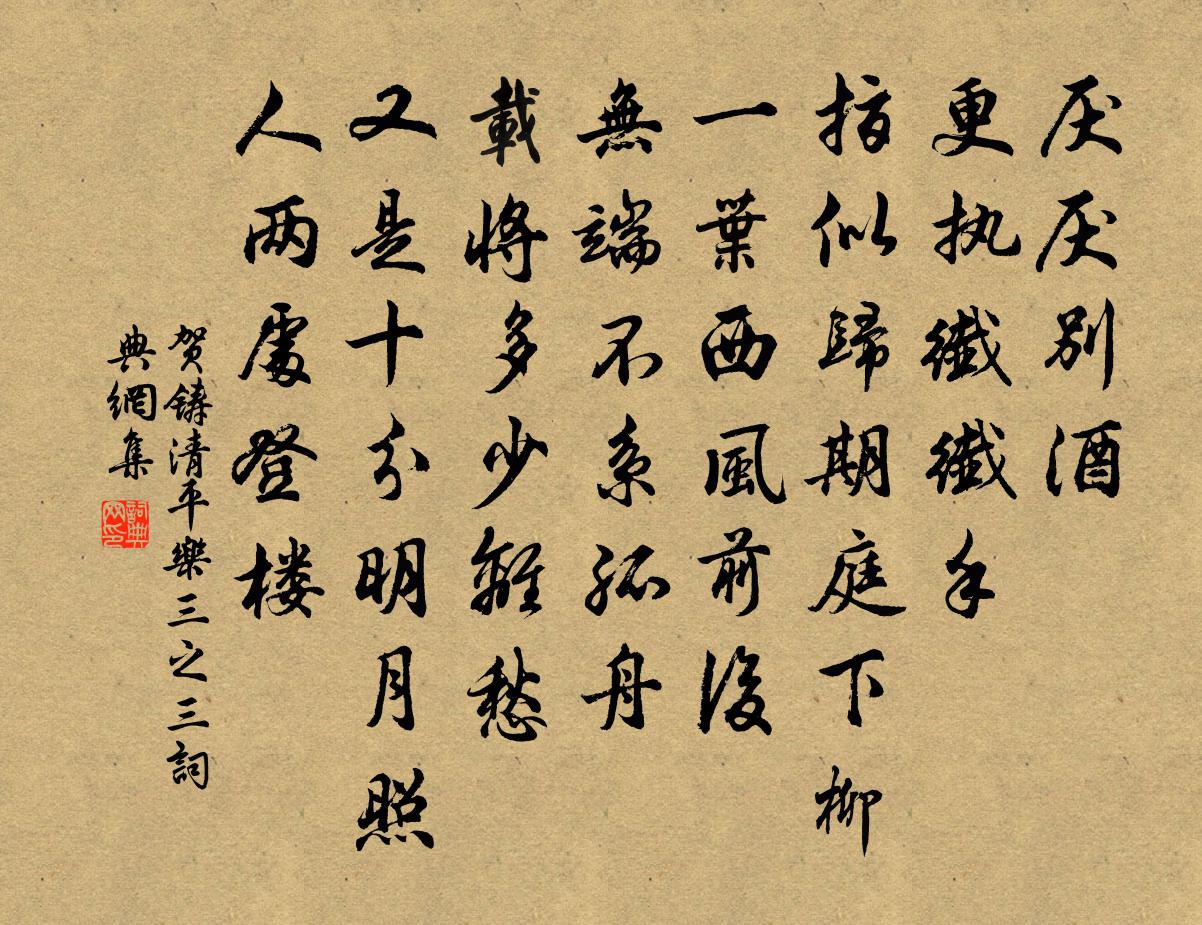 厌厌别酒
更执纖纖手
指似歸期庭下柳
一葉西風前後
無端不系孤舟
載將多少離愁
又是十分明月照
人两處登楼
贺鑄清平樂三之三詞
典網集
詞典
网印